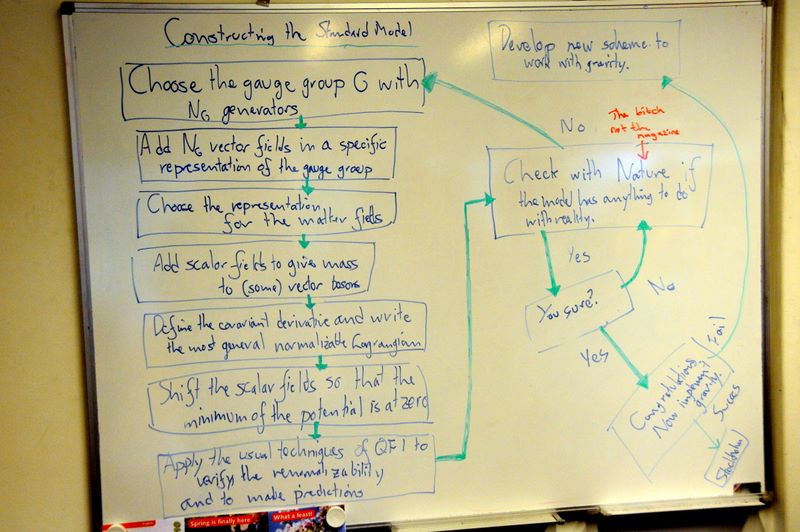 Constructing the Standard Model
Choose the gauge group G with
NG generators
Add NG vector fields in a specific
representation of the gauge group
Choose the representation
for the matter fields
Add scalar fields to give mass
to (some) vector bosons
Define the covariant derivative and write
the most general normalizable Lagrangian
Shift the scalar fields so that the
minimum of the potential is at zero
Apply the usual techniques of QFT to
verify the renormalizability
and to make predictions
Develop new scheme to
work with gravity.
No
The bitch
not the
magazine
Check with Nature if
the model has anything to do
with reality.
Yes
No
You sure?
Yes
Congratulations
Now implement
gravity.
Fail
Succes
Stockholm
Spring is finally here
What a feast!